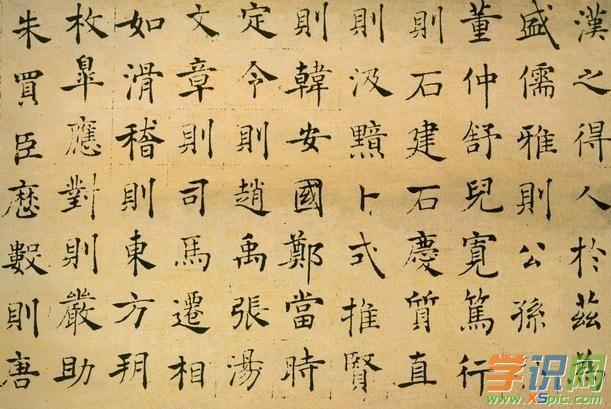 漢之得人於茲為
盛儒雅則公孫
董仲舒兒寬篤行
則石建石慶質直
則汲黯卜式推賢
則韓安國鄭當時
定令則趙禹張湯
文章則司馬遷相
如滑稽則東方朔
枚皐應對則嚴助
朱買臣歷數則唐
学识网
www.XSpic.com